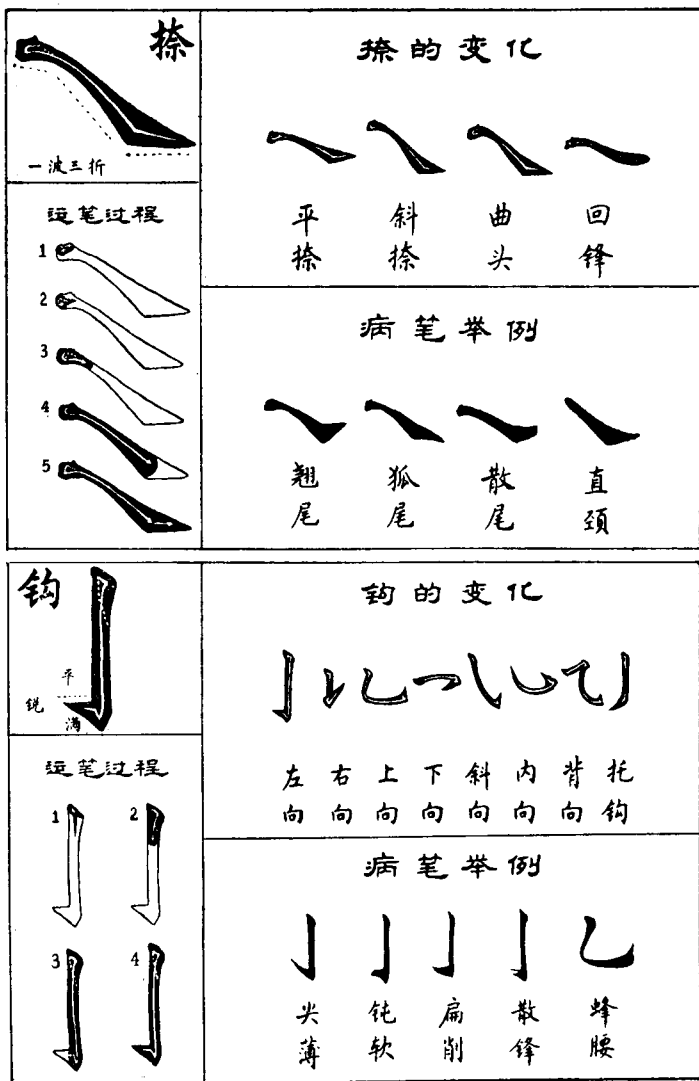 捺
一波三折
运笔过程
1
2
3
4
5
捺的变化
平捺 斜捺 曲头 回锋
病笔举例
翘尾 狐尾 散尾 直颈
钩
平
锐
满
运笔过程
1 2
3 4
钩的变化
左向 右向 上向 下向 斜向 内向 背向 托钩
病笔举例
尖薄 钝软 扁削 散锋 蜂腰